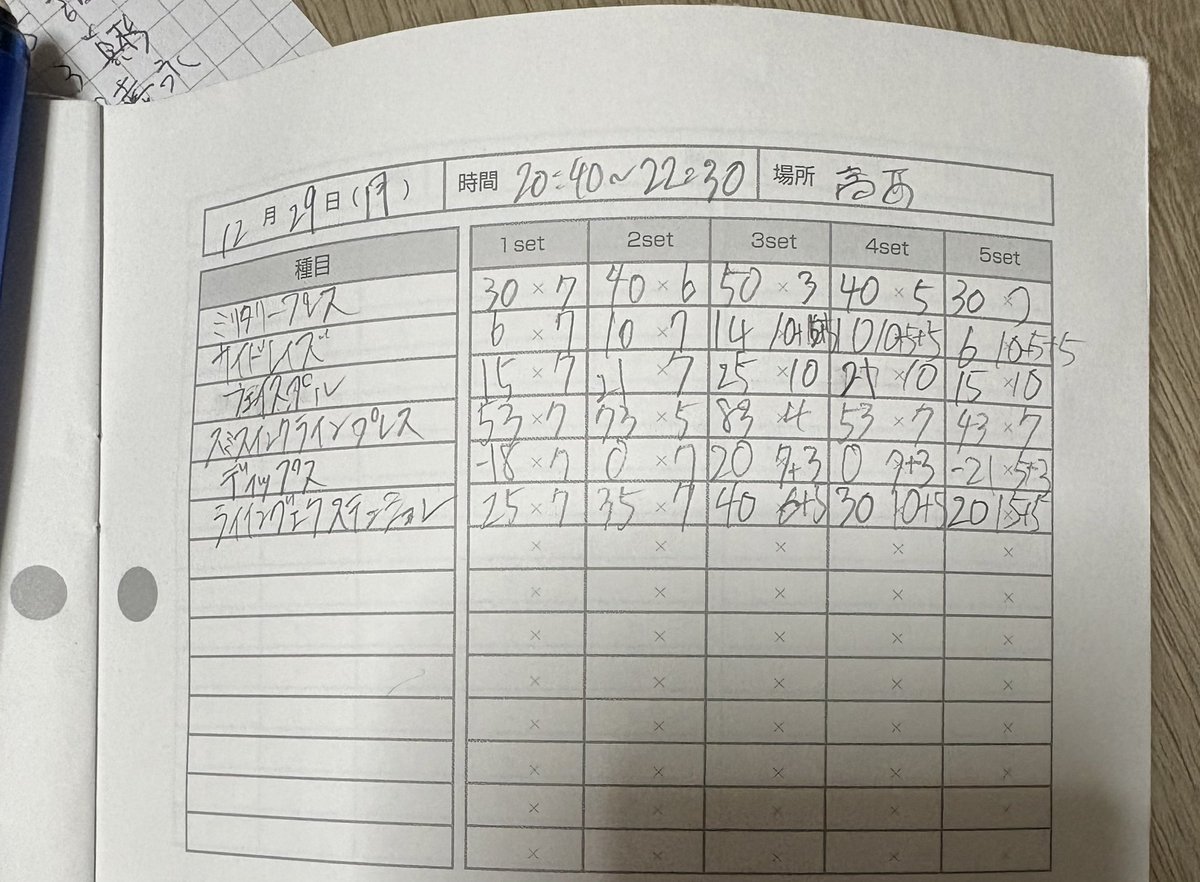 12月29日(月) 時間 20:40~22:30 場所 高西
種目 1set 2set 3set 4set 5set
ミリタリープレス 30×7 40×6 50×3 40×5 30×7
サイドレイズ 6×7 10×7 14 10 10+5+5 6 10+5+5
フェイスプル 15×7 21×7 25×10 21×10 15×10
スミスインクラインプレス 53×7 73×5 83×4 53×7 43×7
ディップス -18×7 0×7 20 7+3 0 7+3 -21×5+3
ライイングエクステンション 25×7 35×7 40 30 10+5 20 15+5
× × × × ×
× × × × ×
× × × × ×
× × × × ×
× × × × ×
× × × × ×
× × × × ×
× × × × ×